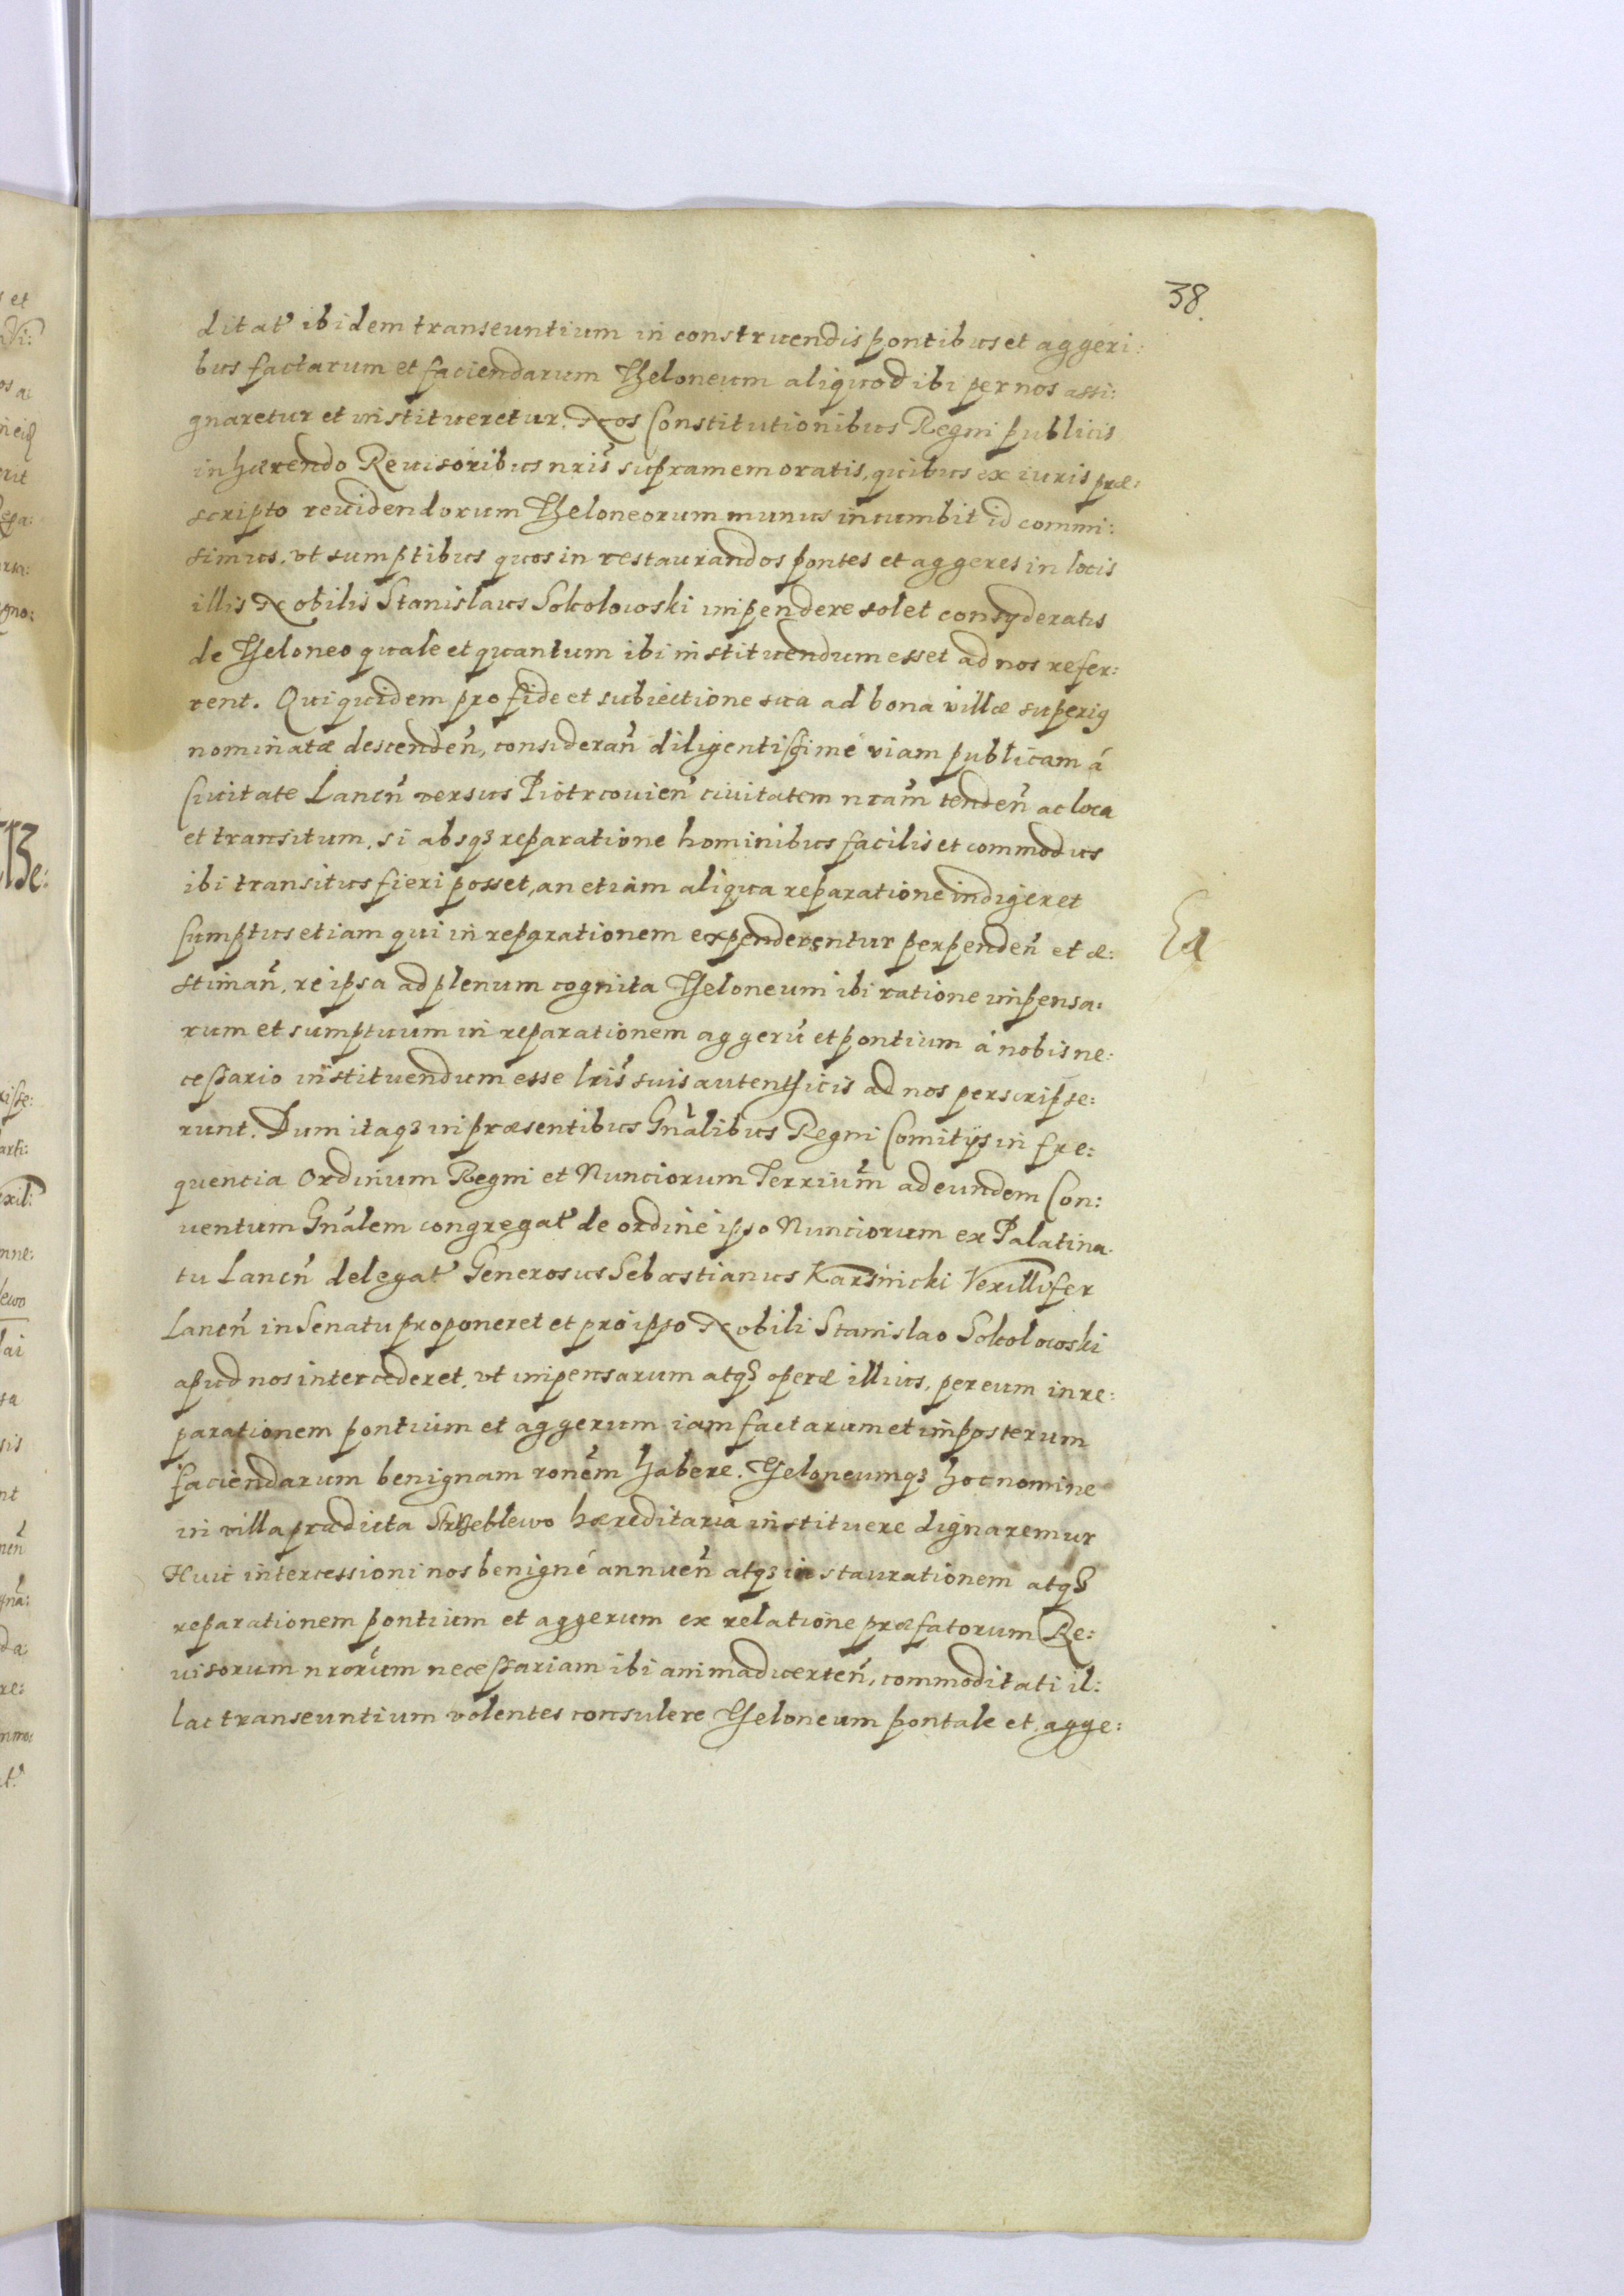 38.
ditat' ibidem transeuntium in construendis pontibus et aggeri:
bus factarum et faciendarum Theloneum aliquod ibi per nos assi:
gnaretur et institueretur. Nos Constitutionibus Regni publicis
inhærendo Reuisoribus nr̃is supramemoratis, quibus ex iuris præ:
scripto reuidendorum Theloneorum munus incumbit id commi:
simus. vt sumptibus quos in restaurandos pontes et aggeres in locis
illis Nobilis Stanislaus Sokolowski impendere solet consyderatis
de Theloneo quale et quantum ibi instituendum esset ad nos refer:
rent. Qui quidem pro fide et subiectione sua ad bona villæ superiꝯ
nominatæ descendeñ, consideran̄ diligentissimé viam publicam á
Ciuitate Lanciñ versus Piotrcouieñ ciuitatem nrãm tendeñ ac loca
et transitum, si absqꝫ reparatione hominibus facilis et commodus
ibi transitus fieri posset, an etiam aliqua reparatione indigeret
Sumptus etiam qui in reparationem expenderentur perpendeñ et æ:
stimañ, re ipsa ad plenum cognita Theloneum ibi ratione impensa:
rum et sumptuum in reparationem aggerũ et pontium á nobis ne:
cessario instituendum esse lr̃is suis autenthicis ad nos perscripse:
runt. Dum itaqꝫ in præsentibus Gñalibus Regni Comitijs in fre:
quencia Ordinum Regni et Nunciorum Terrium̃ ad eundem Con:
uentum Gñalem congregat' de ordine ipso Nunciorum ex Palatina:
tu Lanciñ delegat' Generosus Sebastianus Karsnicki Vexillifer
Lanciñ in Senatu proponeret et pro ipso Nobili Stanislao Sokolowski
apud nos intercederet, vt impensarum atqꝫ operæ illius, per eum in re:
parationem pontium et aggerum iam factarum et imposterum
faciendarum benignam ronẽm habere. Theloneumqꝫ hoc nomine
in villa prædicta Strzeblewo hæreditaria instituere dignaremur
Huic intercessioni nos benigné annueñ atqꝫ instaurationem atqꝫ
reparationem pontium et aggerum ex relatione præfatorum Re:
uisorum nrorũm necessariam ibi animaduerteñ, commoditati il:
lac transeuntium volentes consulere Theloneum pontale et agge: